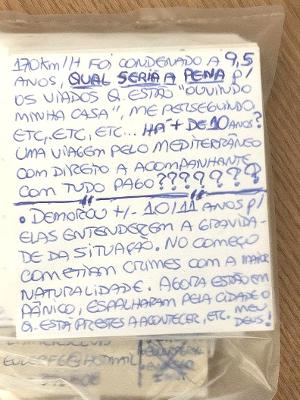 170KM/H FOI CONDENADO A 9,5
ANOS, QUAL SERIA A PENA P/
OS VIADOS Q ESTÃO "OUVINDO
MINHA CASA", ME PERSEGUINDO,
ETC, ETC, ETC... HÁ + DE 10 ANOS?
UMA VIAGEM PELO MEDITERRÂNEO
COM DIREITO A ACOMPANHANTE
COM TUDO PAGO???????
• DEMOROU +/- 10/11 ANOS P/
ELAS ENTENDEREM A GRAVIDA-
DE DA SITUAÇÃO. NO COMEÇO
COMETIAM CRIMES COM A MAIOR
NATURALIDADE. AGORA ESTÃO EM
PÂNICO, ESPALHARAM PELA CIDADE O
Q. ESTA PRESTES A ACONTECER, ETC. MEU
DEUS!